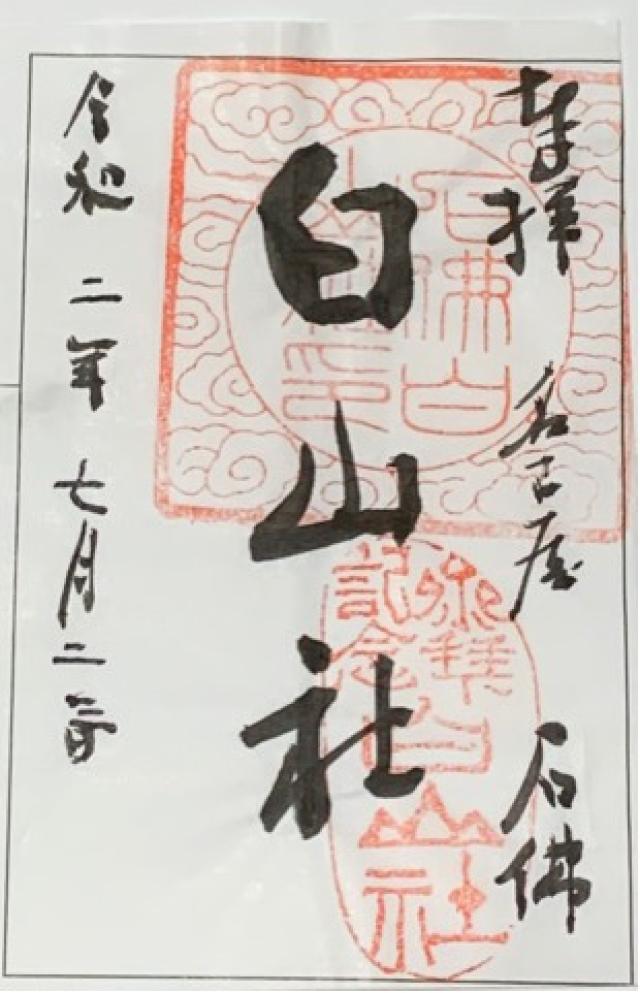 奉拝 名古屋 石佛
白山社
令和二年七月二三日
石佛白
山社印
参拝
記念
白山社